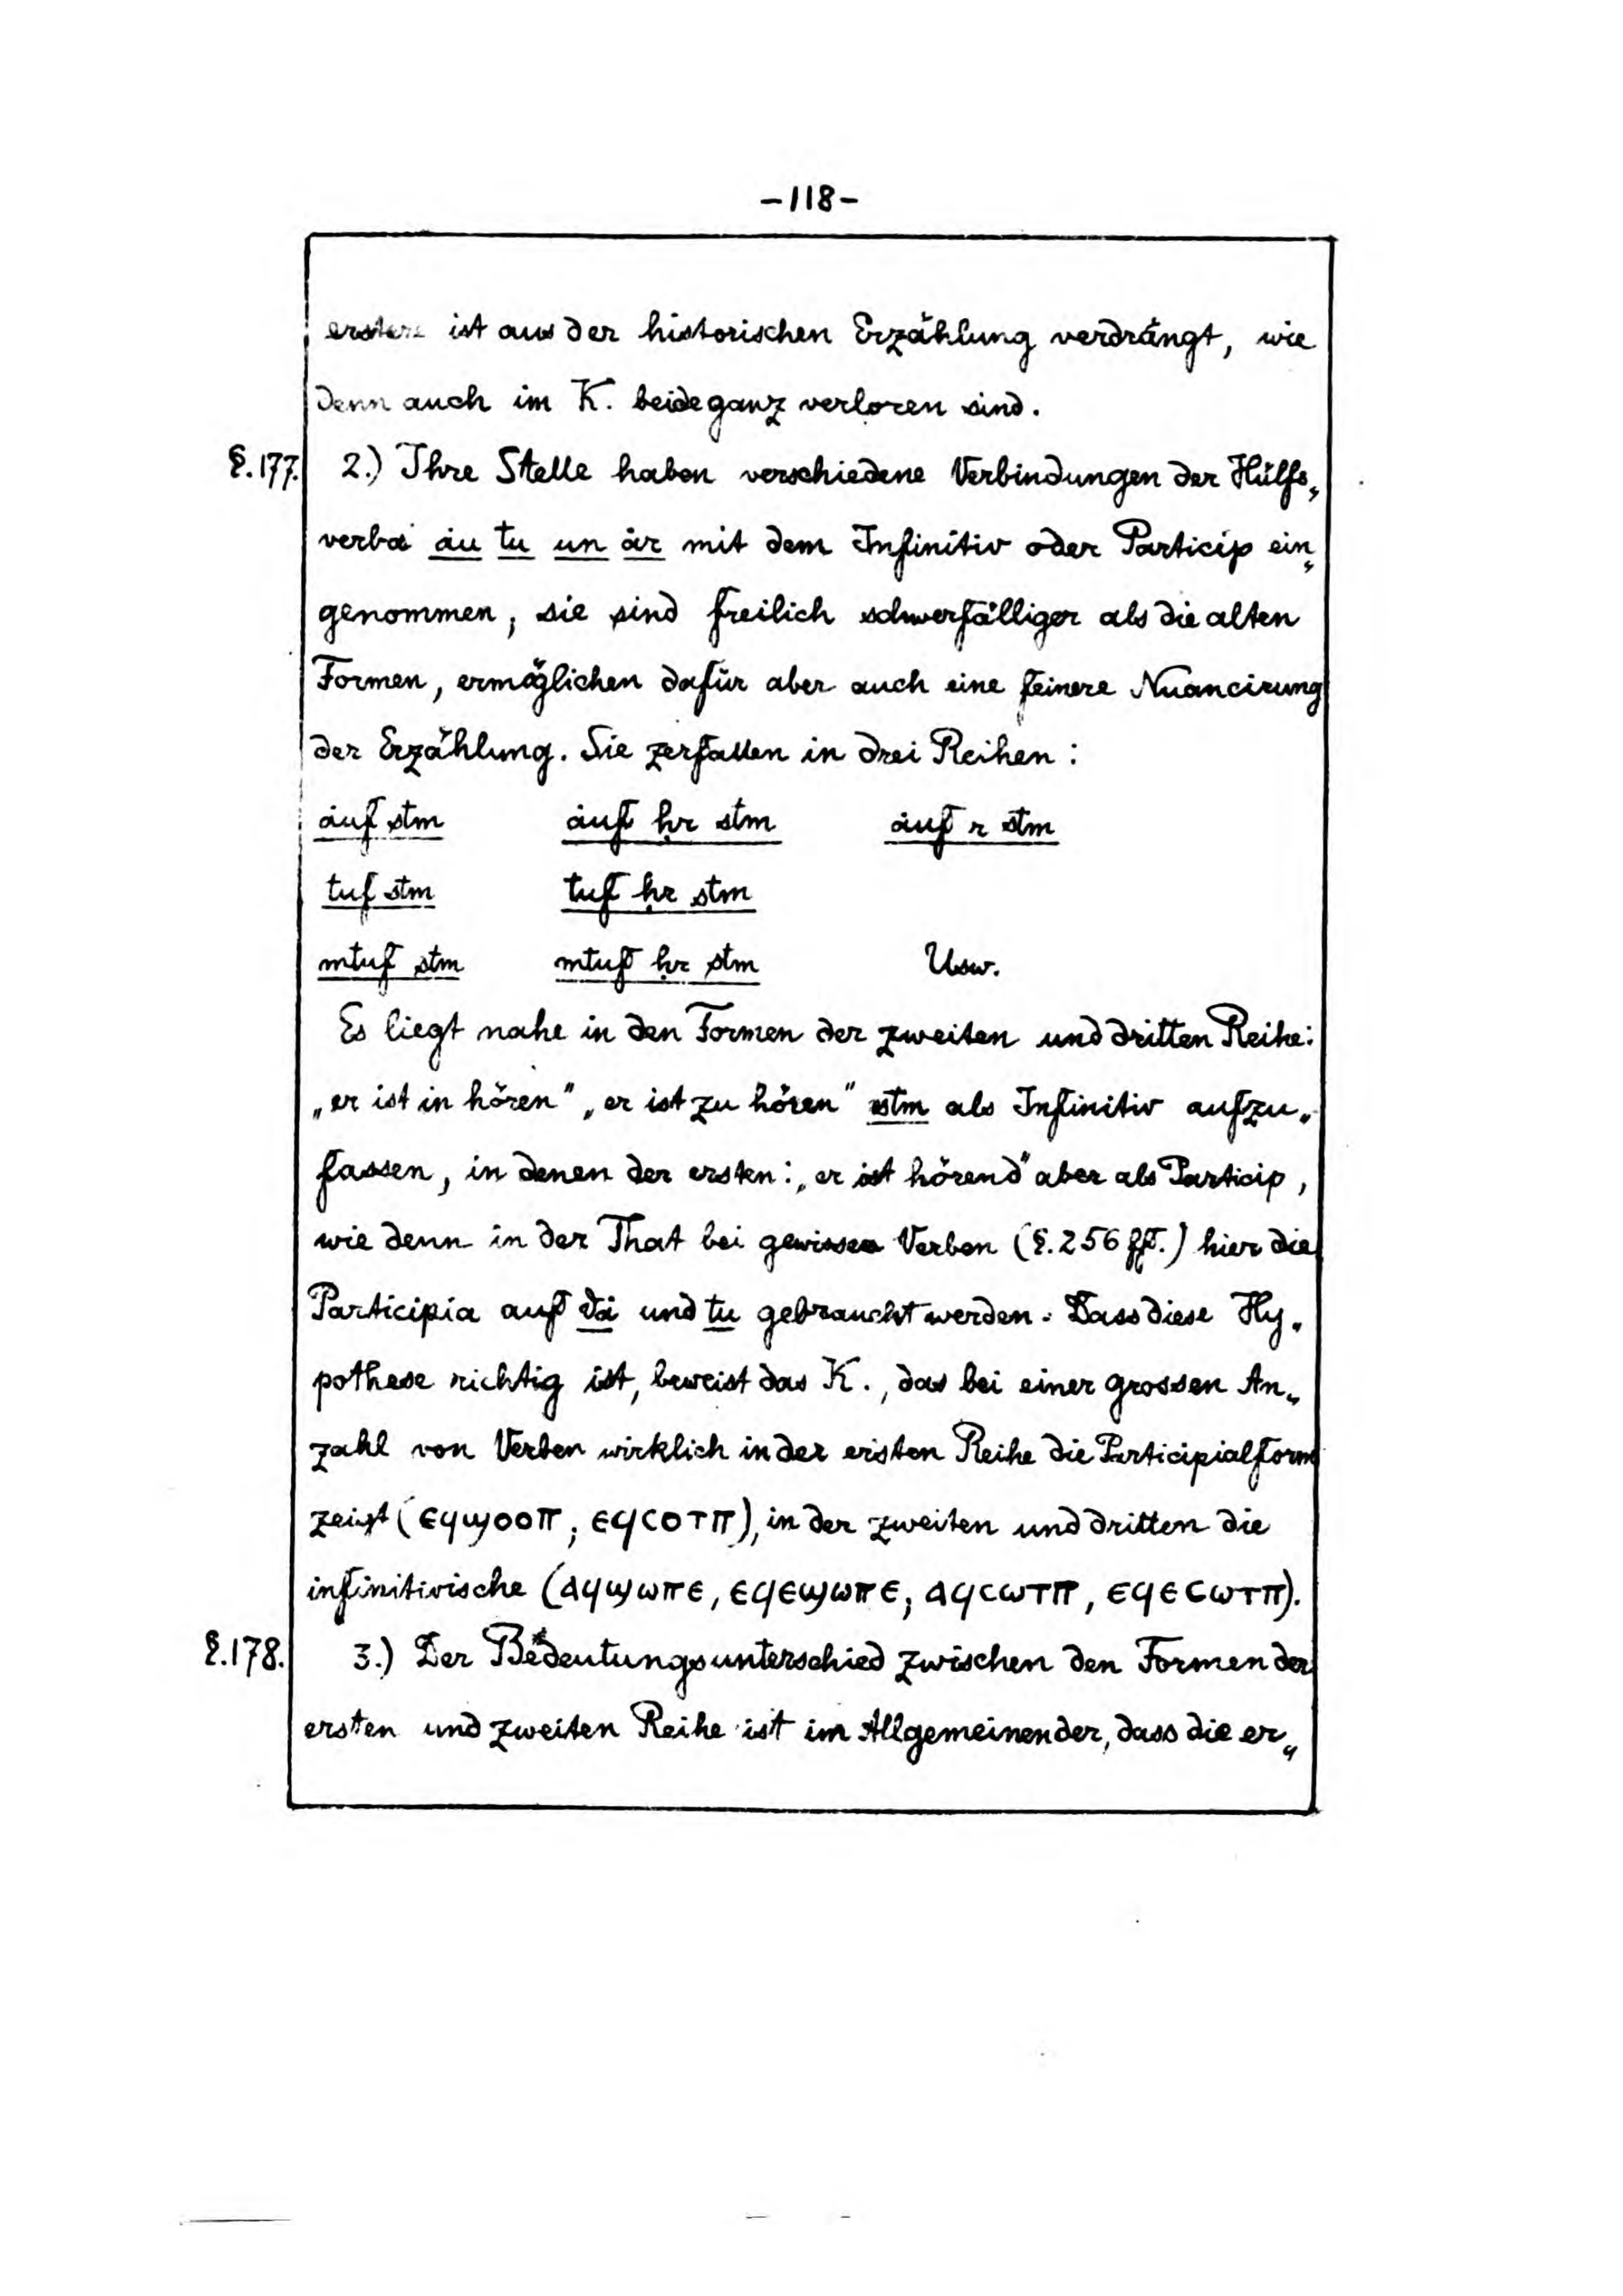 -118-
erstere ist aus der historischen Erzählung verdrängt, wie
denn auch im K. beide ganz verloren sind.
§.177. 2.) Ihre Stelle haben verschiedene Verbindungen der Hülfs„
verba áu tu un ár mit dem Infinitiv oder Particip ein„
genommen, sie sind freilich schwerfälliger als die alten
Formen, ermöglichen dafür aber auch eine feinere Nuancirung
der Erzählung. Sie zerfallen in drei Reihen:
áuf stm áuf ḥr stm áuf r stm
tuf stm tuf ḥr stm
mtuf stm mtuf ḥr stm Usw.
Es liegt nahe in den Formen der zweiten und dritten Reihe:
„er ist in hören" „er ist zu hören" stm als Infinitiv aufzu„
fassen, in denen der ersten: „er ist hörend" aber als Particip,
wie denn in der That bei gewissen Verben (§.256 fft.) hier die
Participia auf und tu gebraucht werden. Dass diese Hy„
pothese richtig ist, beweist das K., das bei einer grossen An„
zahl von Verben wirklich in der ersten Reihe die Participialform
zeigt (ⲉϥϣⲟⲟⲡ, ⲉϥⲥⲟⲧⲡ), in der zweiten und dritten die
infinitivische (ⲁϥϣⲱⲡⲉ, ⲉϥⲉϣⲱⲡⲉ, ⲁϥⲥⲱⲧⲡ, ⲉϥⲉⲥⲱⲧⲡ).
§.178. 3.) Der Bedeutungsunterschied zwischen den Formen der
ersten und zweiten Reihe ist im Allgemeinen der, dass die er„